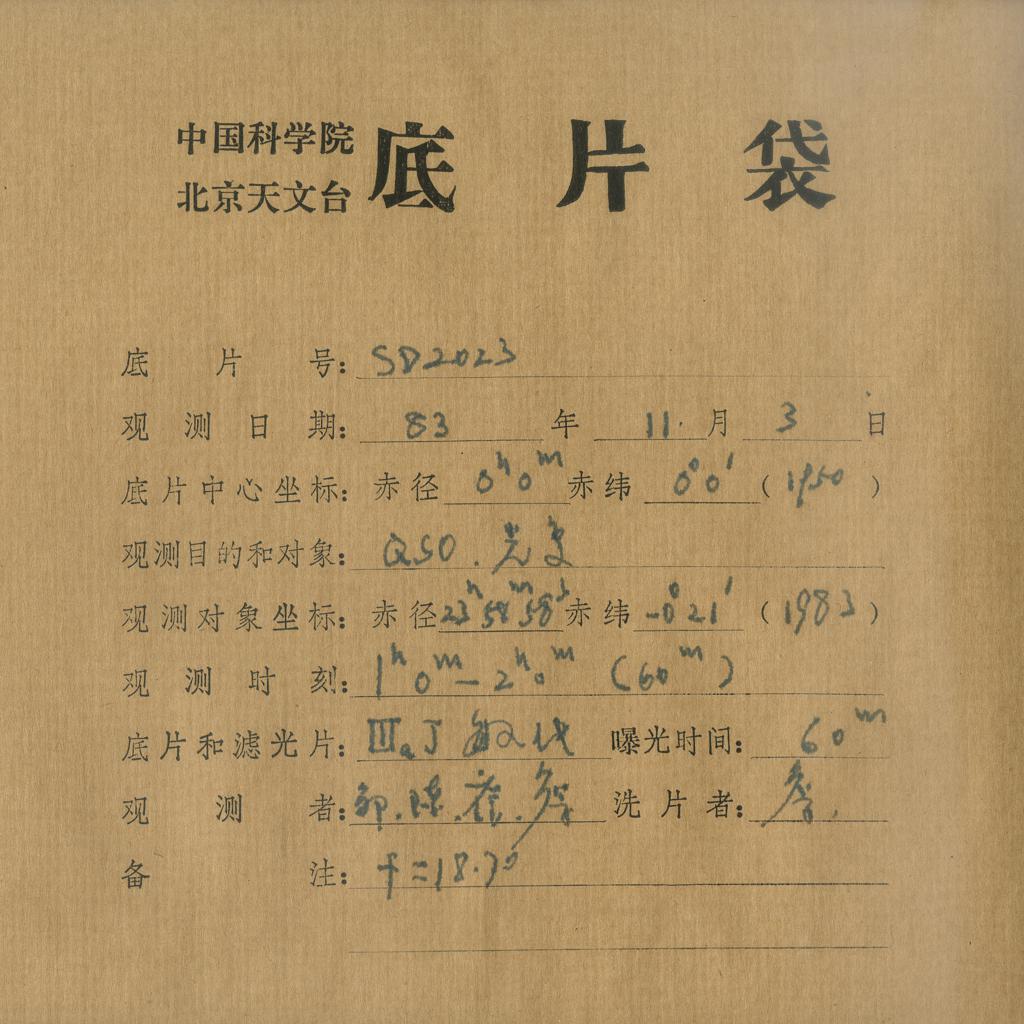 中国科学院
北京天文台
底片袋
底片号: SD2023
观测日期: 83年 11.月 3日
底片中心坐标: 赤径 0ʰ0ᵐ 赤纬 0°0′ (1950)
观测目的和对象: QSO. 光变
观测对象坐标: 赤径 23ʰ58ᵐ58ˢ 赤纬 -0°21′ (1983)
观测时刻: 1ʰ0ᵐ—2ʰ0ᵐ (60ᵐ)
底片和滤光片: IIIaJ 敏化 曝光时间: 60ᵐ
观测者: 陈. 洗片者:
备注: f=18.70